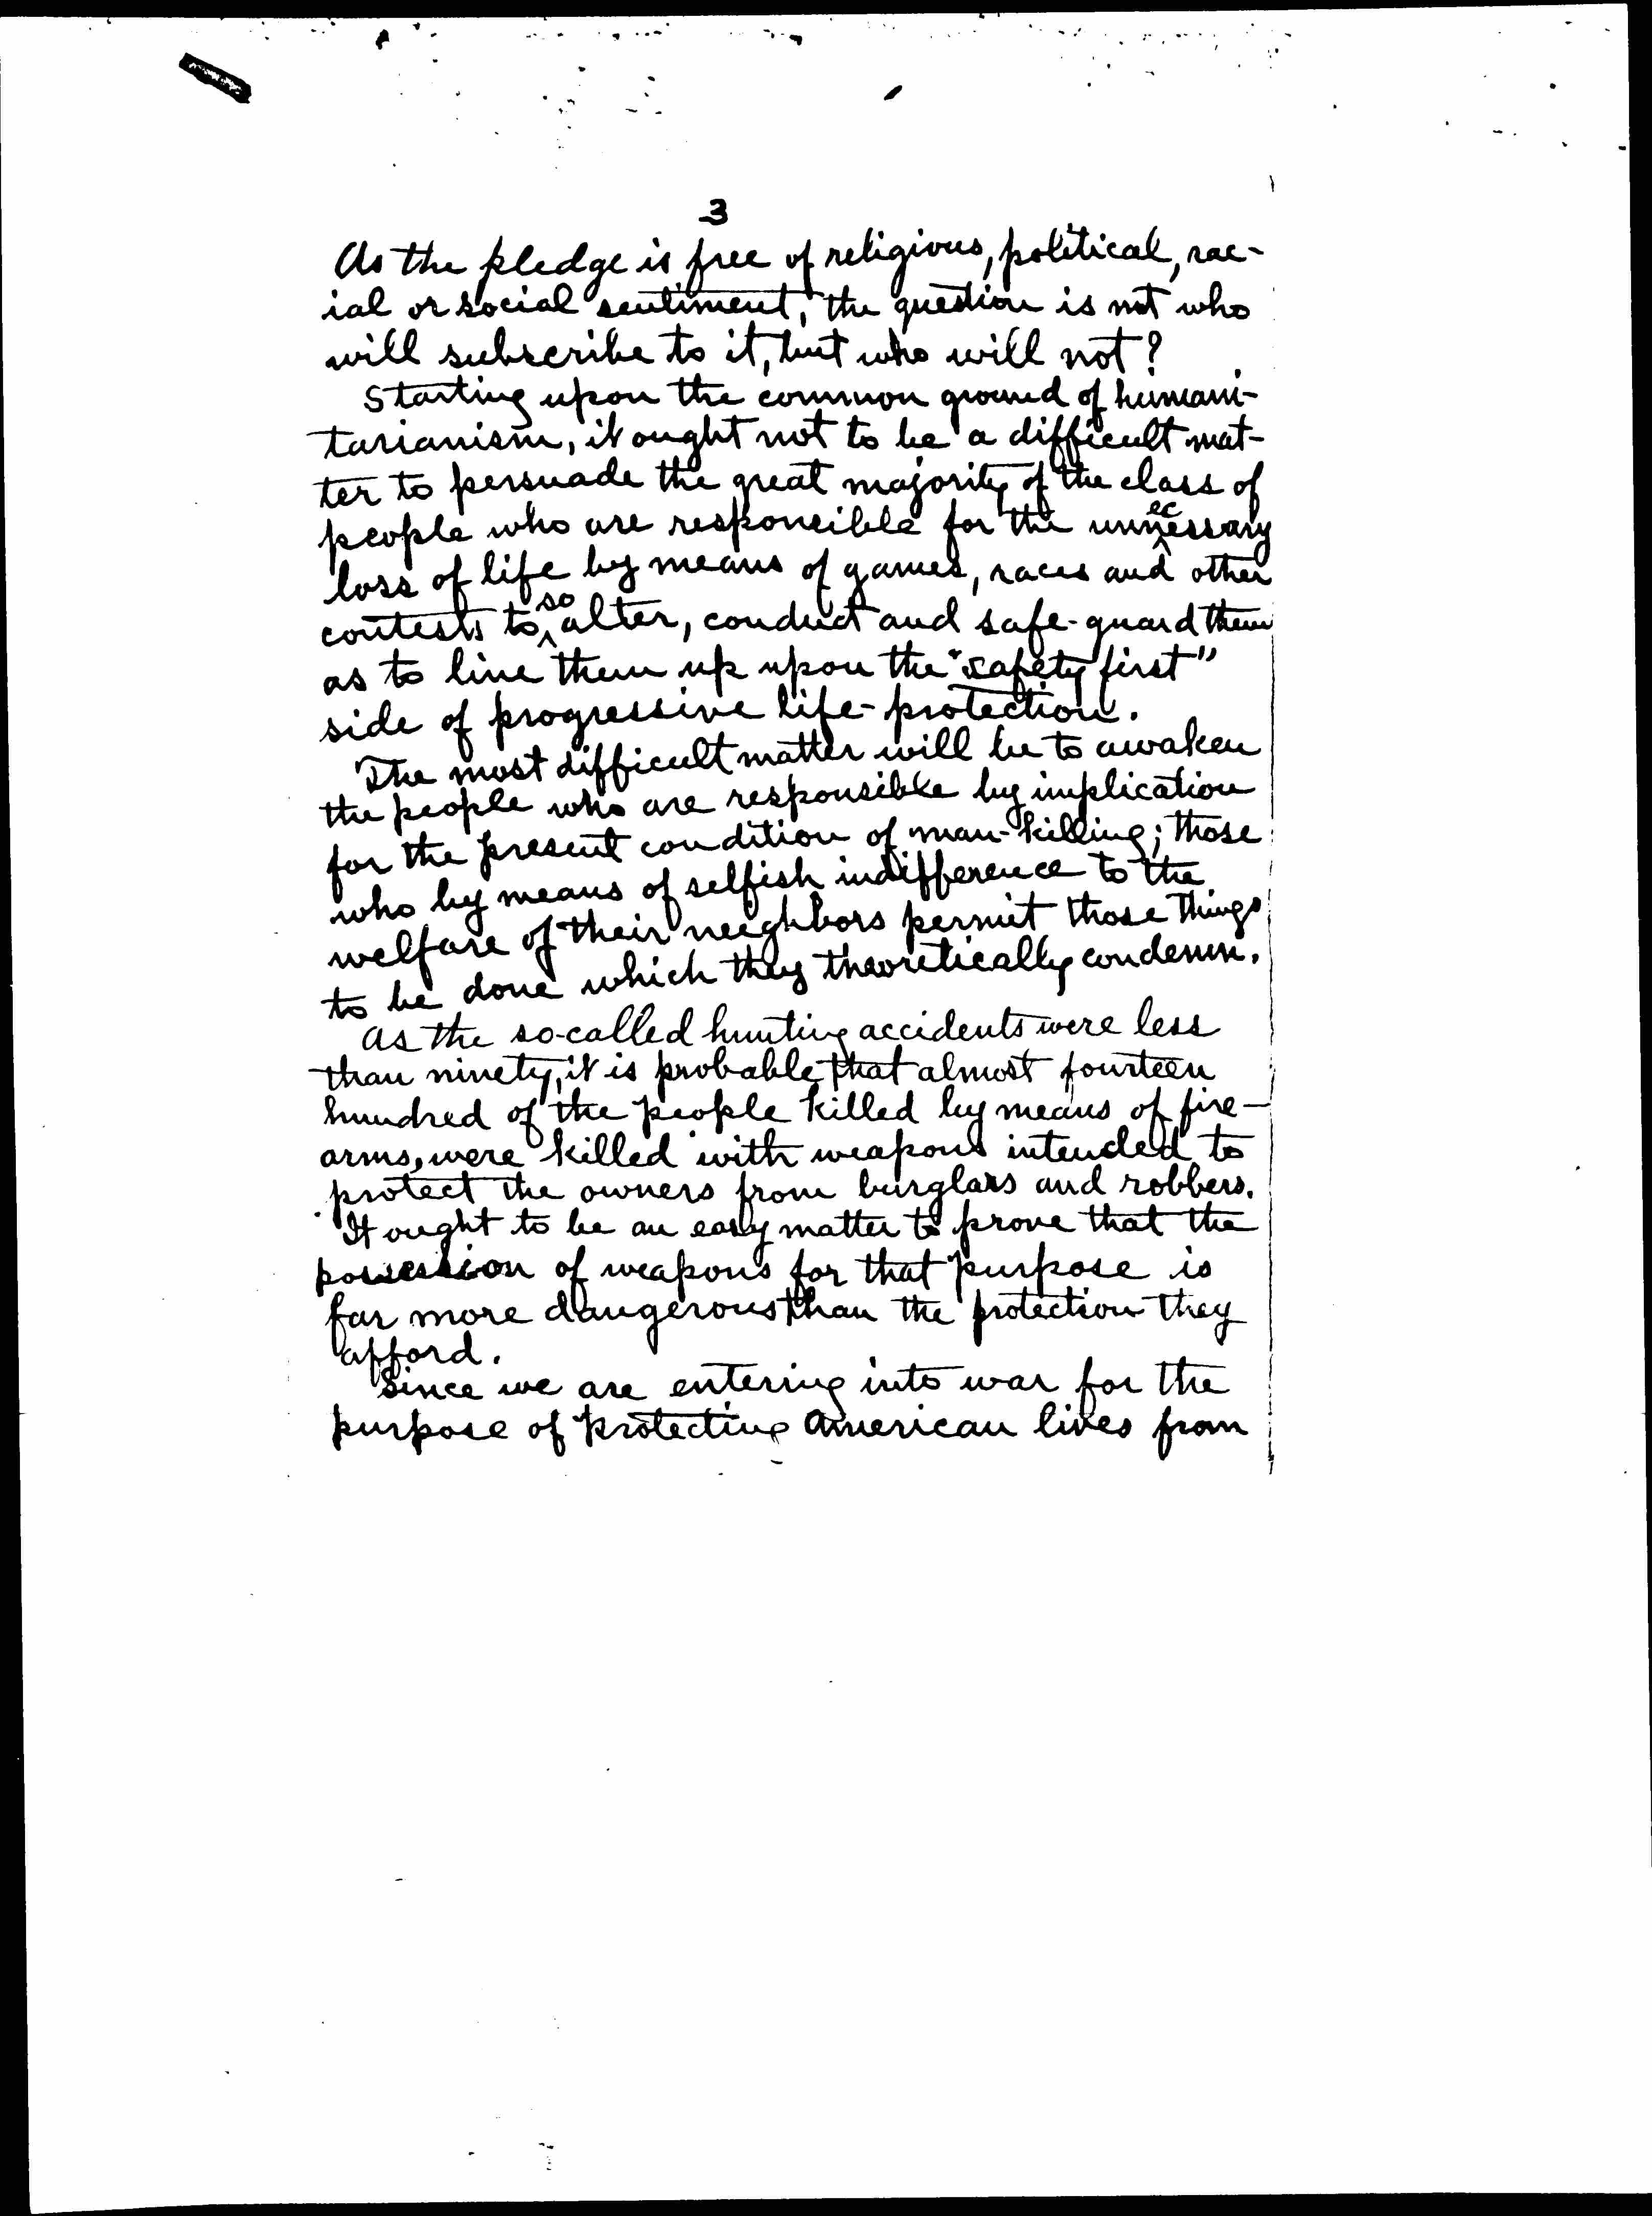 3
As the pledge is free of religious, political, rac-
ial or social sentiment, the question is not who
will subscribe to it, but who will not?
Starting upon the common ground of humani-
tarianism, it ought not to be a difficult mat-
ter to persuade the great majority of the class of
people who are responsible for the unnecessary
loss of life by means of games, races and other
contests to so alter, conduct and safe-guard them
as to line them up upon the "safety first"
side of progressive life-protection.
The most difficult matter will be to awaken
the people who are responsible by implication
for the present condition of man-killing; those
who by means of selfish indifference to the
welfare of their neighbors permit those things
to be done which they theoretically condemn.
As the so-called hunting accidents were less
than ninety, it is probable that almost fourteen
hundred of the people killed by means of fire-
arms, were killed with weapons intended to
protect the owners from burglars and robbers.
It ought to be an easy matter to prove that the
possession of weapons for that purpose is
far more dangerous than the protection they
afford.
Since we are entering into war for the
purpose of protecting American lives from